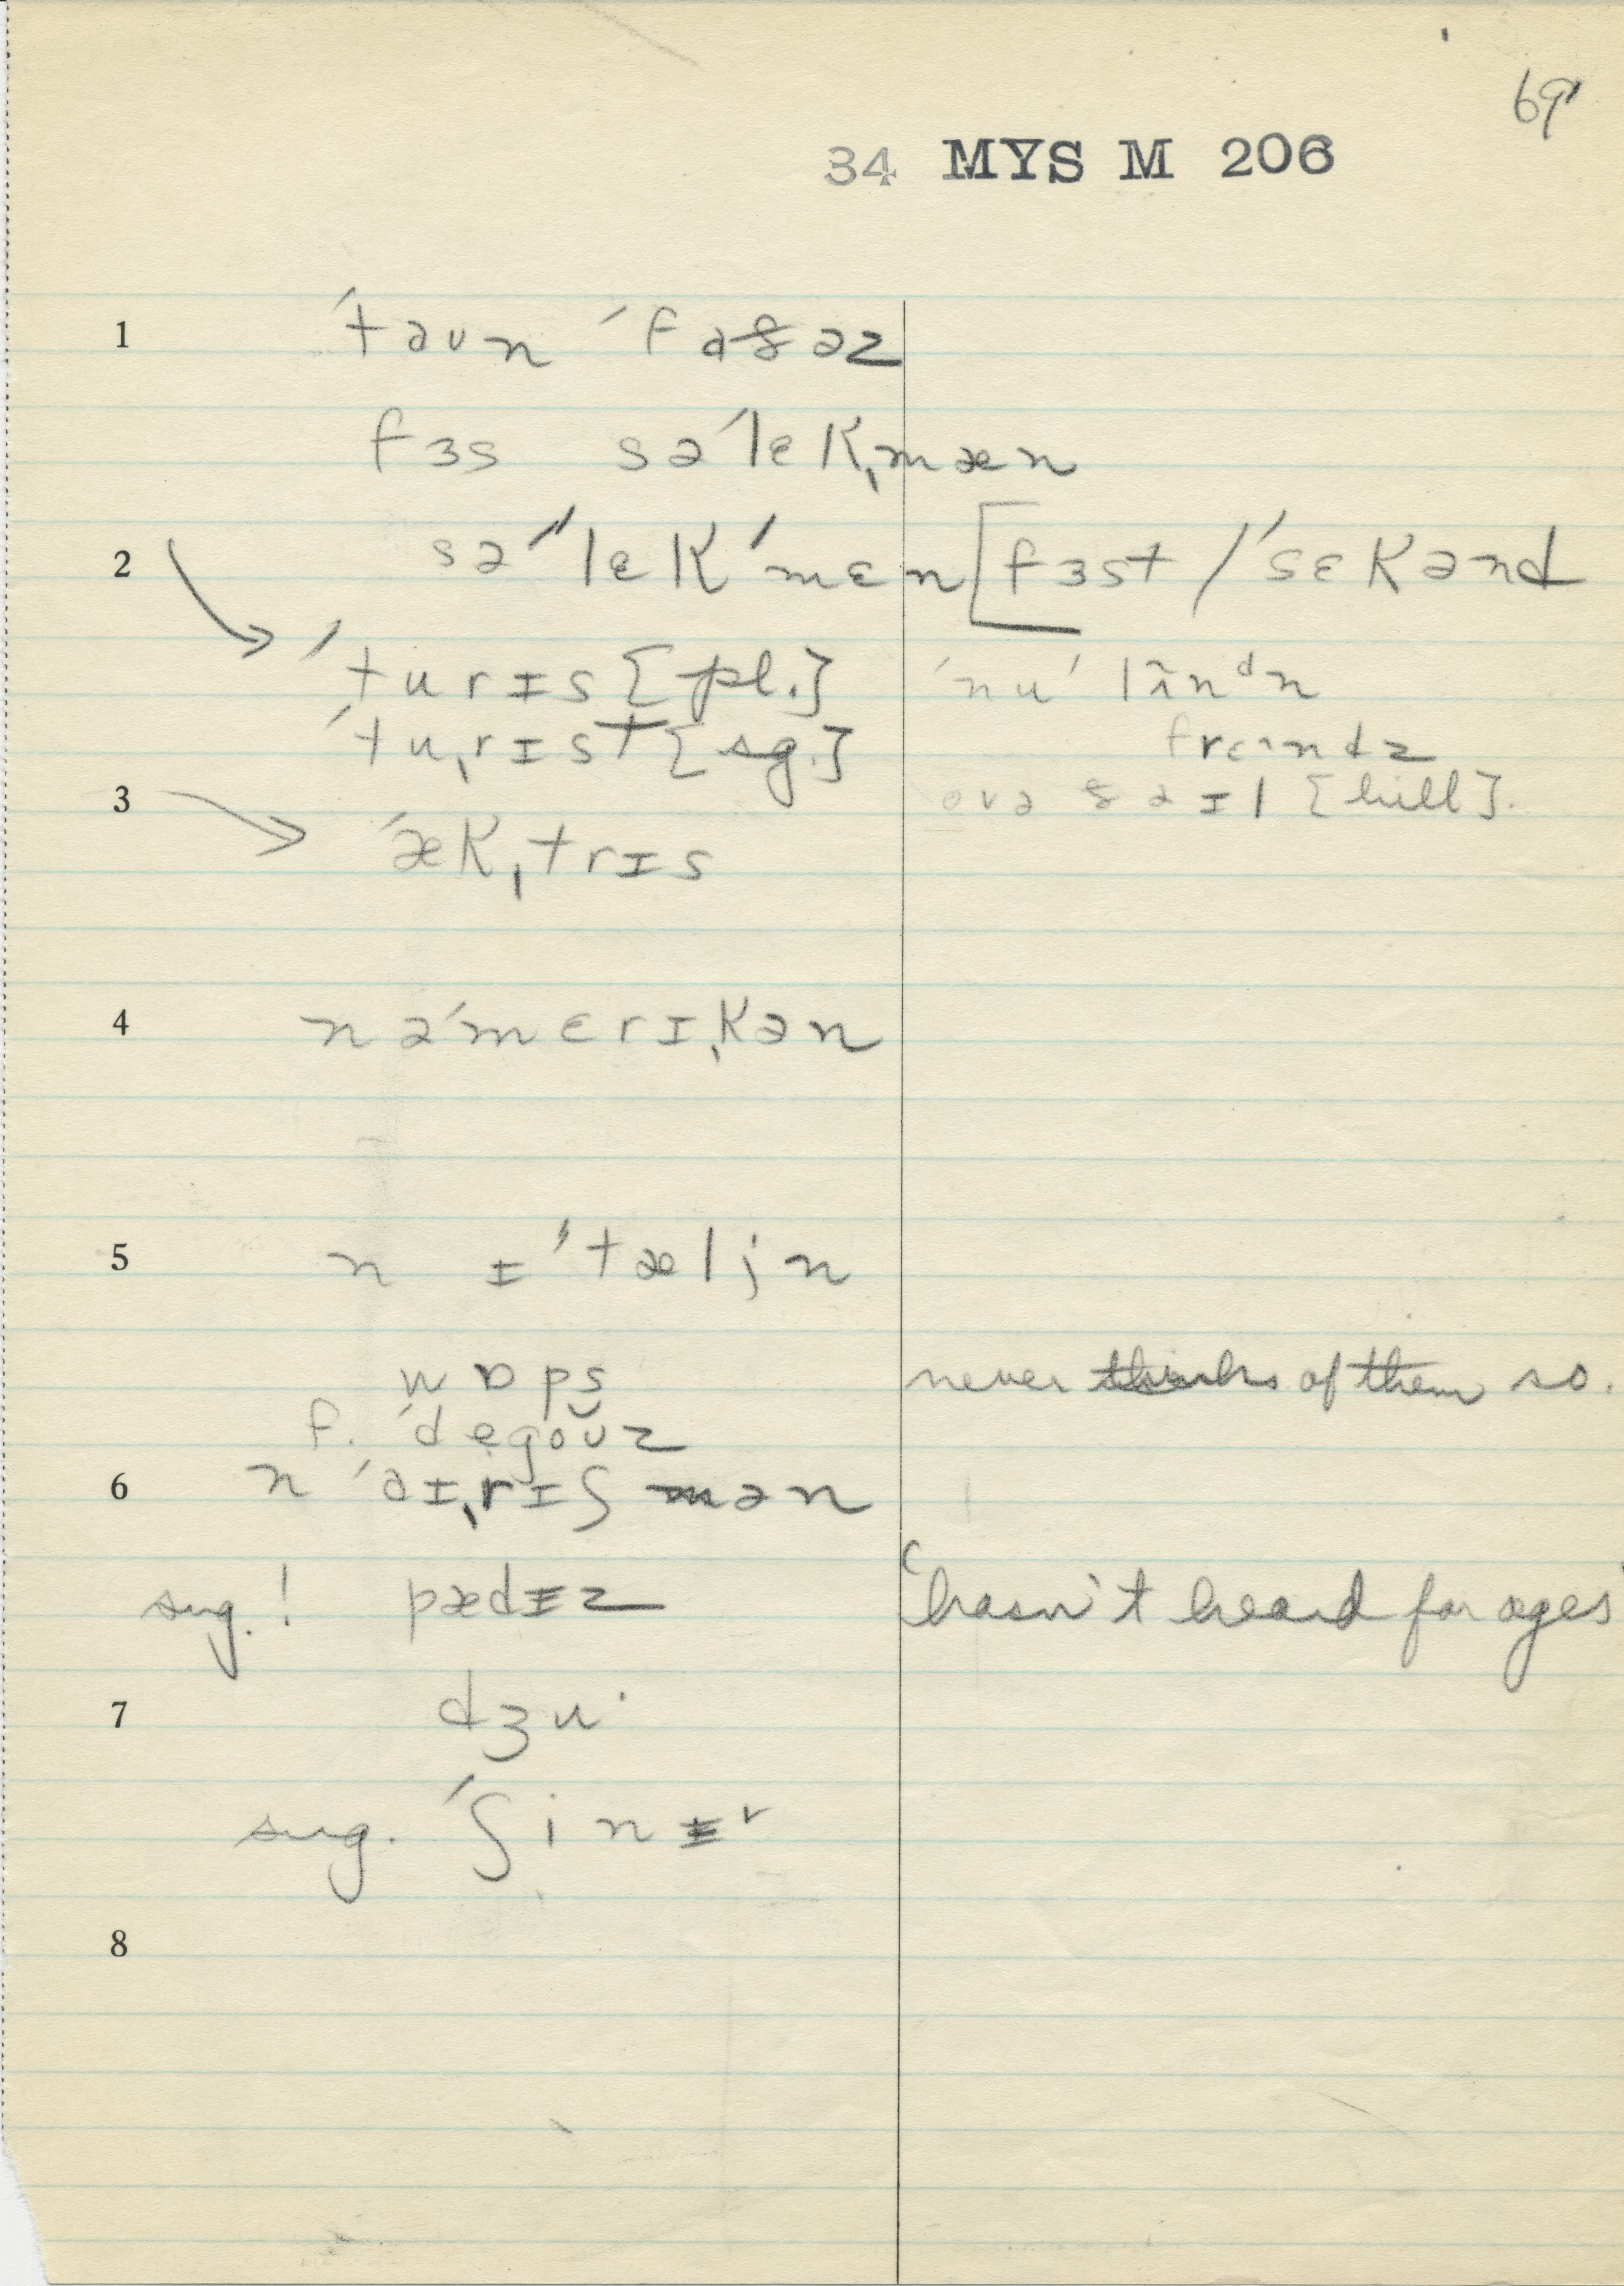 69
34 MYS M 206
1 ˈtəʊn ˈfɑðəz
fɜs səˈlɛkˌmæn
2 səˈˈlɛkˈmɛn [fɜst / ˈsɛkənd
ˈturɪs [pl.] ˈnuˈ
ˈtuˌrɪst [sg.] frɛndz
3 ovə ðəɪl [hill].
ˈækˌtrɪs
4 nəˈmɛrɪˌkən
5 n ɪˈtæljn
wɒps never thinks of them so.
f. ˈdegoʊz
6 n ˈəɪˌrɪʃmən
sug.! pædɪz 'hasn't heard for ages'
7 dʒu·
sug. ˈʃinɪ
8